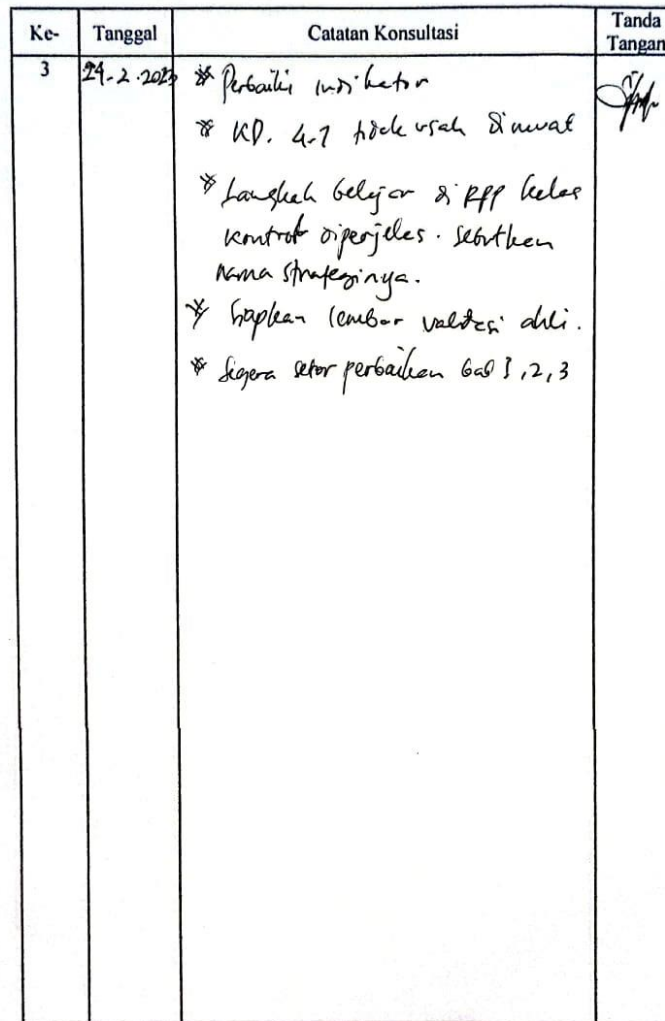 Ke-
Tanggal
Catatan Konsultasi
Tanda
Tangan
3
24-2-2023
* Perbaiki indikator
* KD. 4.7 tidak usah dimuat
* Langkah belajar di RPP kelas
kontrol diperjelas. Sebutkan
nama strateginya.
* Siapkan lembar validasi ahli.
* Segera setor perbaikan bab 1, 2, 3